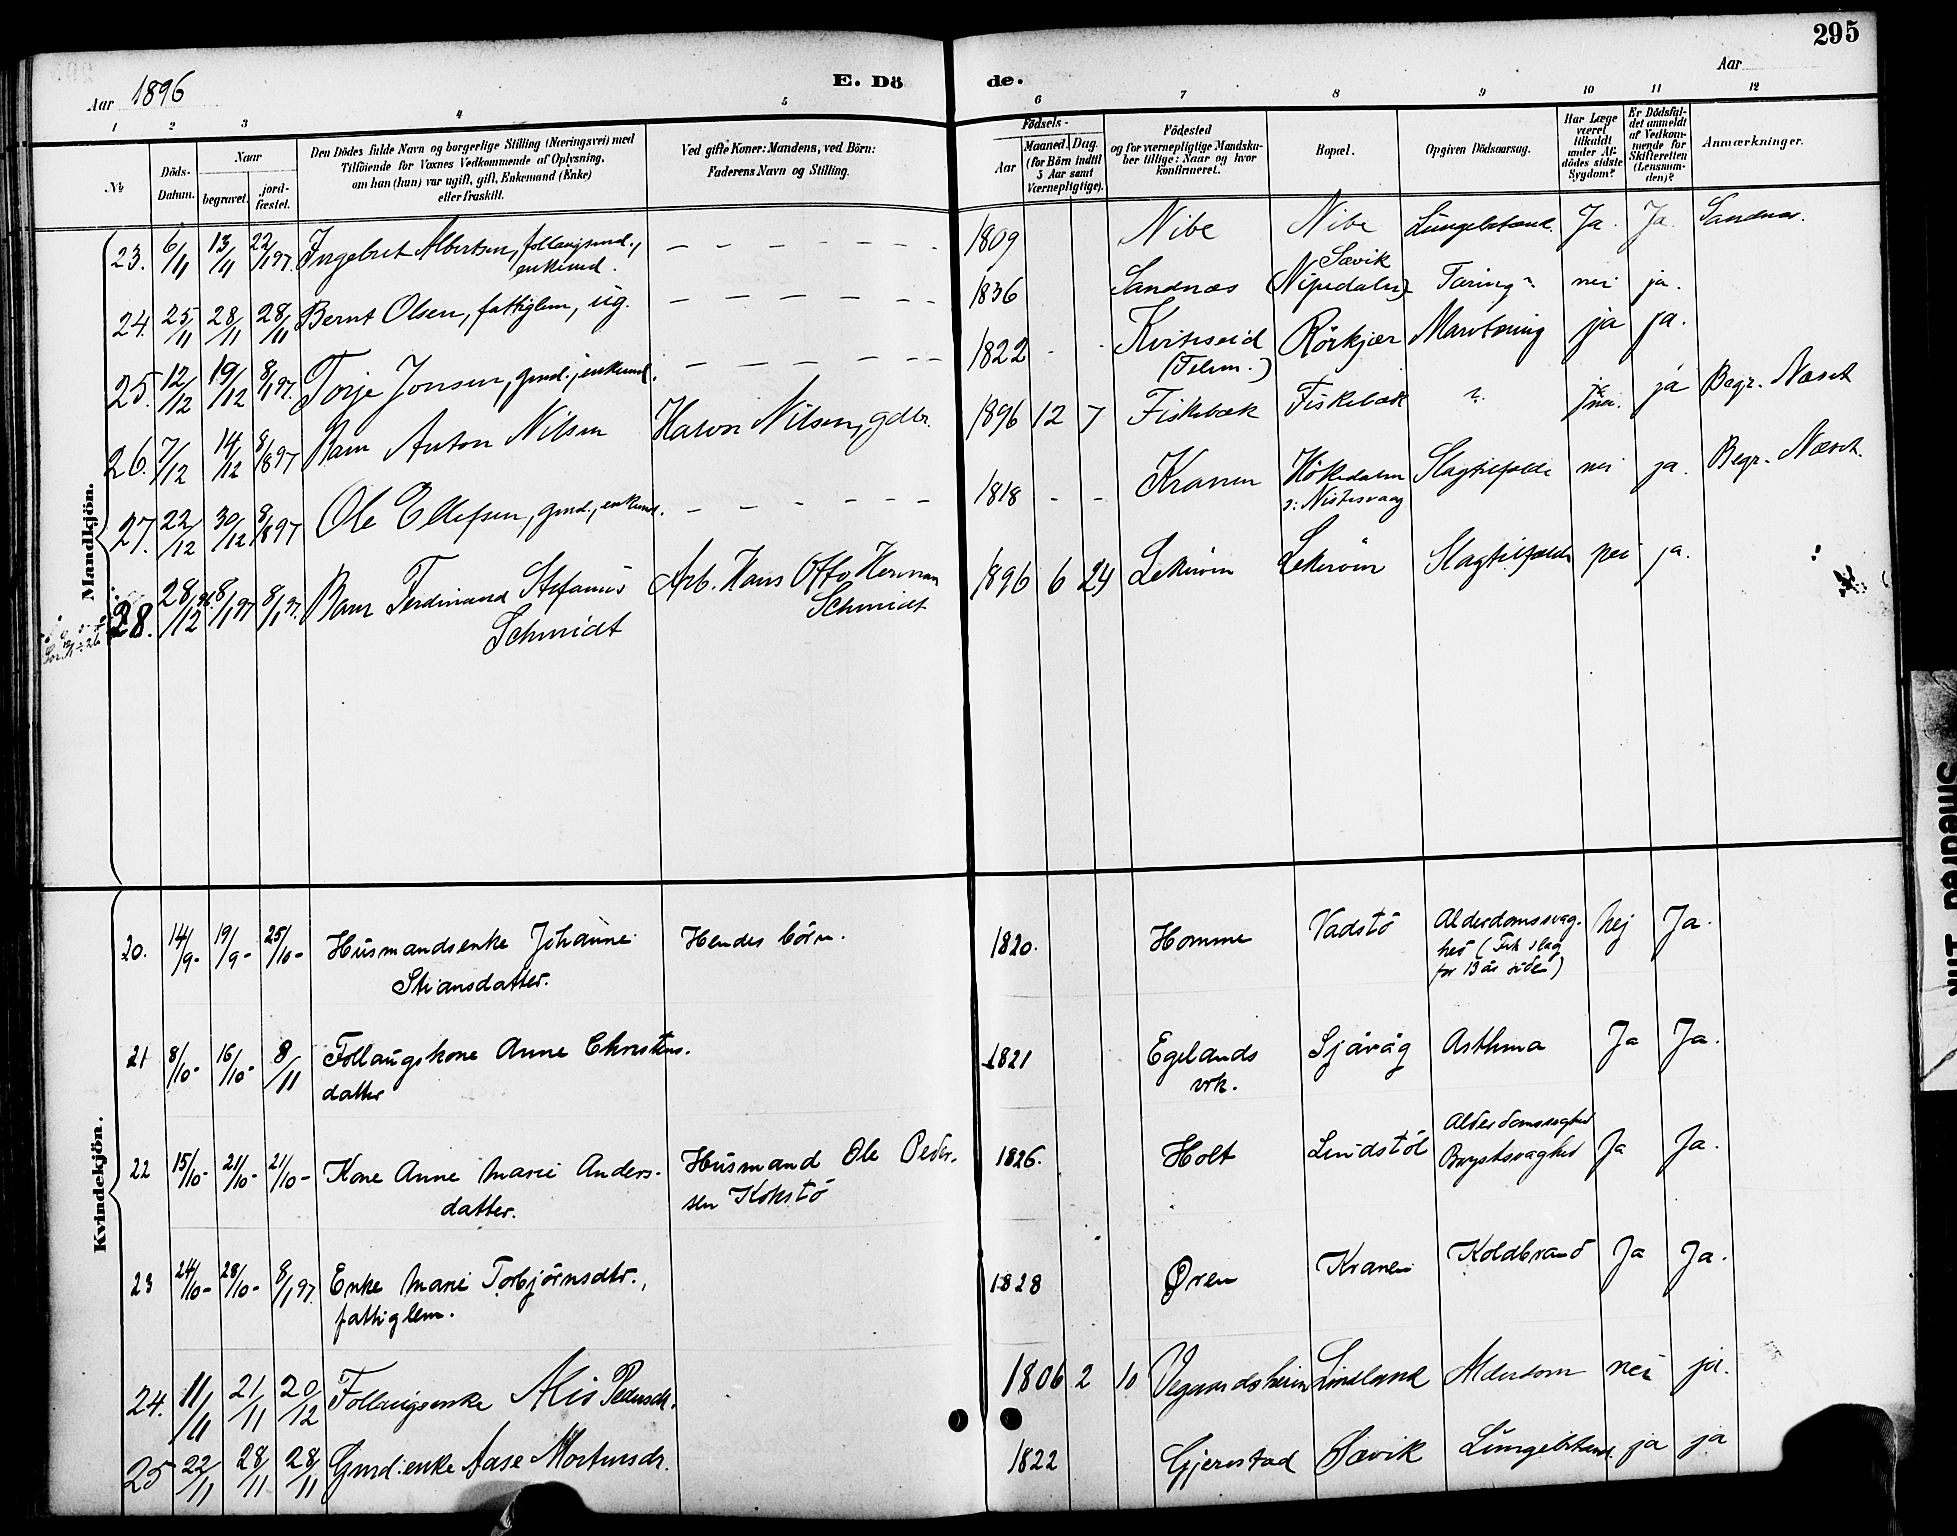 295
Aar 1896
E. Dö de.
Aar
1 2 3 4 5 6 7 8 9 10 11 12
№
Döds-Datum.
Naar
begravet.
jord-fæstet.
Den Dödes fulde Navn og borgerlige Stilling (Næringsvei) med
Tilföiende for Voxnes Vedkommende af Oplysning,
om han (hun) var ugift, gift, Enkemand (Enke)
eller fraskilt.
Ved gifte Koner: Mandens, ved Börn:
Faderens Navn og Stilling.
Födsels-
Aar
Maaned. Dag
(for Börn indtil
5 Aar samt
Værnepligtige).
Födested
og for værnepligtige Mandska-
ber tillige: Naar og hvor
konfirmeret.
Bopæl.
Opgiven Dödsaarsag.
Har Læge
været
tilkaldt
under Af-
dödes sidste
Sygdom?
Er Dödsfal-
det anmeldt
af Vedkom-
mende for
Skifteretten
(Lensman-
den)?
Anmærkninger.
Mandkjön.
23. 6/11 13/11 22/1 97. Ingebret Albertsen, follaugsmd., enkemd. – – – – – – – 1809 Nibe Nibe Lungebetænd. Ja. Ja. Sandnæs.
24. 25/11 28/11 28/11 Bernt Olsen, fattiglem, ug. – – – – – – – 1836 Sandnæs Sævik (Nipedalen) Tæring? nei ja.
25. 12/12 19/12 8/1 97. Torje Jonsen, gmd., enkemd. – – – – – – 1822 - - Kviteseid (Telem.) Rörkjær Marvtæring ja ja.
26. 7/12 14/12 8/1 97 Barn Anton Nilsen Halvor Nilsen, gdbr. 1896 12 7 Fiskebæk Fiskebæk ? ja Begr. Næset
27. 22/12 30/12 8/1 97 Ole Ellefsen, gmd., enkemd. – – – – – – 1818 - - Kranen Hökedalen o: Nistesvaag Slagtilfælde nei ja. Begr. Næset.
28. 28/12 96. 8/1 97 8/1 97. Barn Ferdinand Stefanus Schmidt Arb. Hans Otto Herman Schmidt 1896 6 24 Lekeröen Lekeröen Slagtilfælde nei ja.
Kvindekjön.
20. 14/9- 19/9- 25/10- Husmandsenke Johanne Stiansdatter. Hendes börn. 1820. Homme Vadstö Alderdomssvag-
hed (Fik slag
for 13 år siden) Nej Ja.
21 8/10- 16/10- 8/11 Follaugskone Anne Christens-
datter 1821 Egelands
vrk. Sjåvåg Asthma Ja Ja.
22 15/10- 21/10- 21/10- Kone Anne Marie Anders-
datter. Husmand Ole Peder-
sen Kokstö 1826. Holt Lindstöl Alderdomssvaghed
Brystsvaghed Ja Ja.
23 24/10- 28/10- 8/1 97. Enke Marie Torbjörnsdtr.,
fattiglem. 1828 Øren Kranen Koldbrand Ja Ja.
24. 11/11 21/11 20/12 Follaugsenke Alis Pedersdr. 1806 2 10 Vegaardsheien Lindland Alderdom nei ja.
25 22/11 28/11 28/11 Gmd.enke Aase Mortensdr. 1822 Gjerrestad Sævik Lungebetænd. ja ja